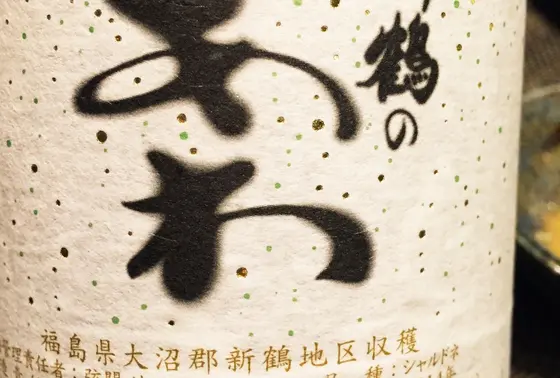 鶴の
あわ
福島県大沼郡新鶴地区収穫
管理責任者： 種：シャルドネ
年